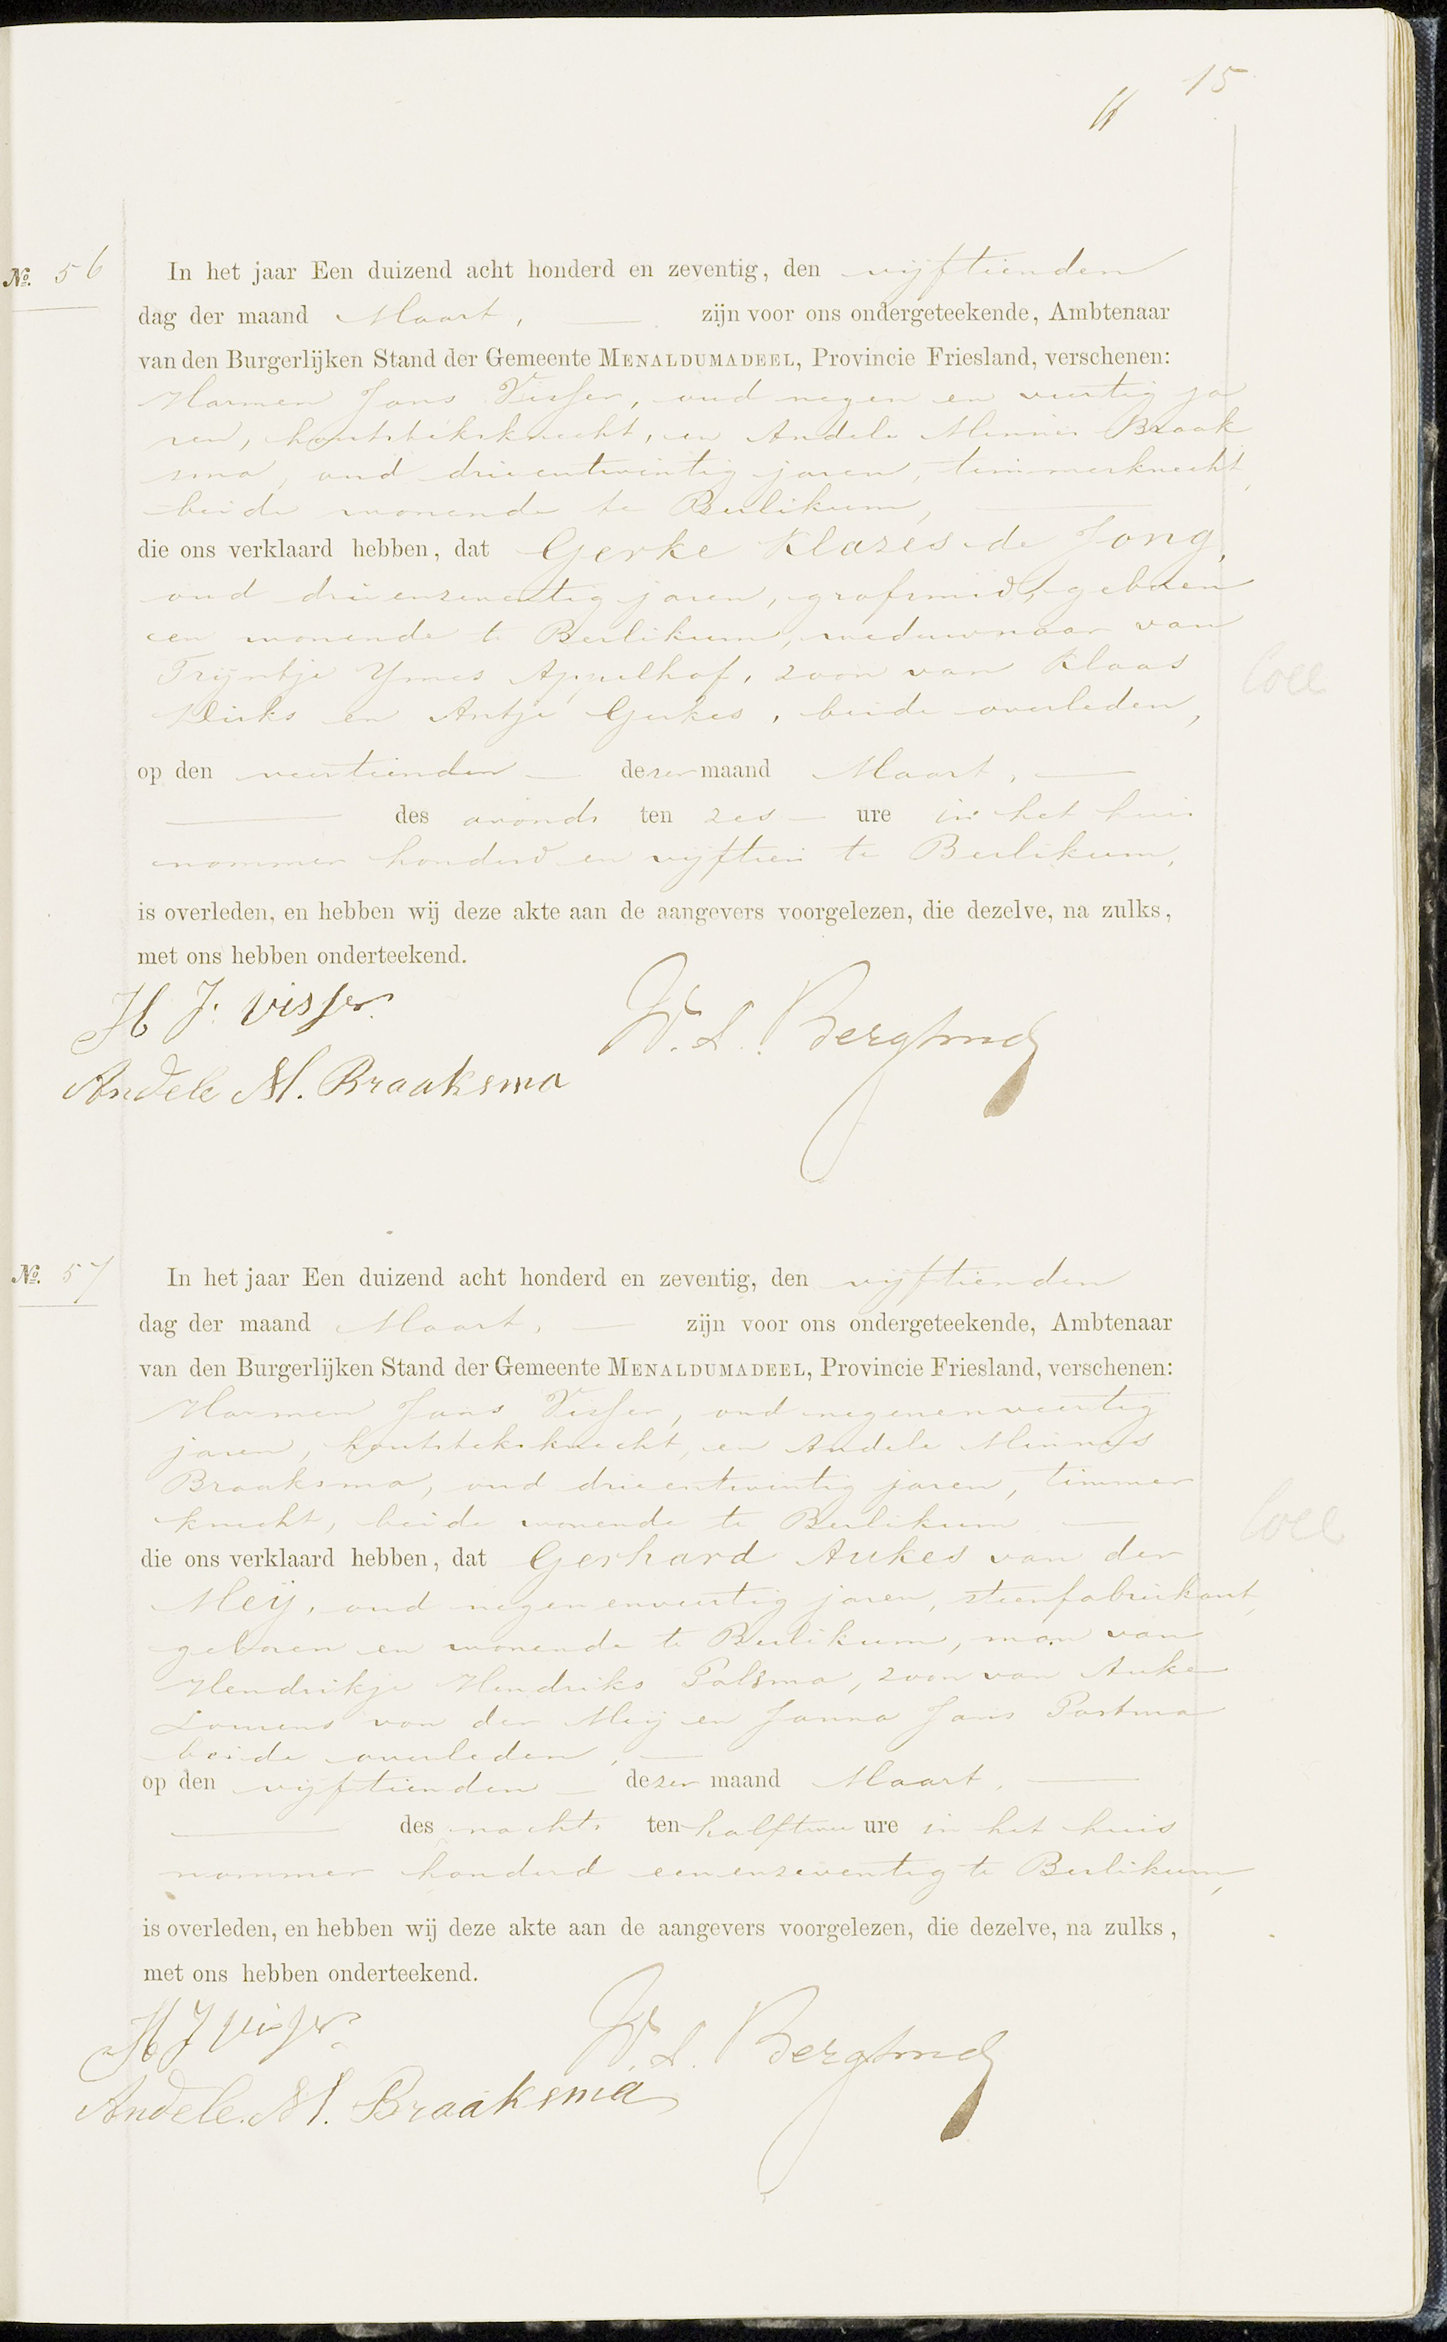 15
№. 56
In het jaar Een duizend acht honderd en zeventig, den vijftienden
dag der maand Maart, zijn voor ons ondergeteekende, Ambtenaar
van den Burgerlijken Stand der Gemeente MENALDUMADEEL, Provincie Friesland, verschenen:
Harmen Jans Visser, oud negen en veertig ja
ren, houtstekknecht, en Andele Minnes Braak
sma, oud drieentwintig jaren, timmerknecht,
beide wonende te Berlikum,
die ons verklaard hebben, dat Gerke Klazes de Jong,
oud drieenzeventig jaren, grofsmid, geboren
en wonende te Berlikum, weduwnaar van
Trijntje Ymes Appelhof, zoon van Klaas
Dirks en Antje Gerkes, beide overleden,
op den veertienden dezer maand Maart,
des avonds ten zes ure in het huis
nommer honderd en vijftien te Berlikum,
is overleden, en hebben wij deze akte aan de aangevers voorgelezen, die dezelve, na zulks,
met ons hebben onderteekend.
H J. Visser
Andele M. Braaksma
Coll
№. 57
In het jaar Een duizend acht honderd en zeventig, den vijftienden
dag der maand Maart, zijn voor ons ondergeteekende, Ambtenaar
van den Burgerlijken Stand der Gemeente MENALDUMADEEL, Provincie Friesland, verschenen:
Harmen Jans Visser, oud negenenveertig
jaren, houtstekknecht, en Andele Minnes
Braaksma, oud drieentwintig jaren, timmer
knecht, beide wonende te Berlikum
die ons verklaard hebben, dat Gerhard Aukes van der
Meij, oud negenenveertig jaren, steenfabriekant,
geboren en wonende te Berlikum, man van
Hendrikje Hendriks Palsma, zoon van Auke
Lourens van der Meij en Janna Jans Postma
beide overleden,
op den vijftienden dezer maand Maart,
des nachts ten half twee ure in het huis
nommer honderd eenenzeventig te Berlikum,
is overleden, en hebben wij deze akte aan de aangevers voorgelezen, die dezelve, na zulks,
met ons hebben onderteekend.
H J Visser
Andele. M. Braaksma
Coll